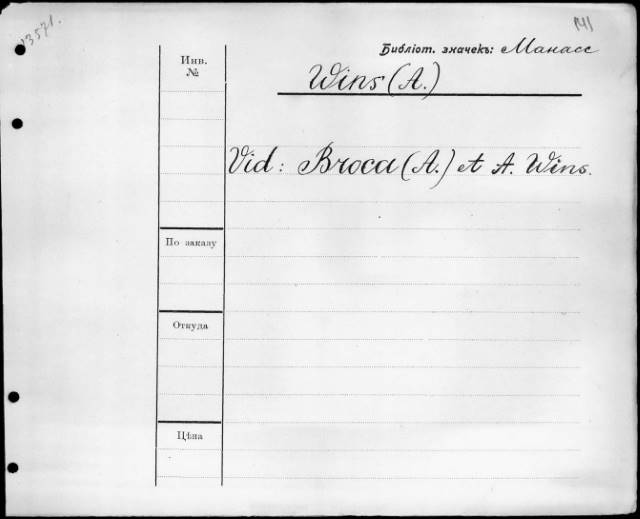 13571.
141
Библіот. значекъ: Манасс
Инв.
№
Wins (A.)
Vid: Broca (A.) et A. Wins.
По заказу
Откуда
Цѣна